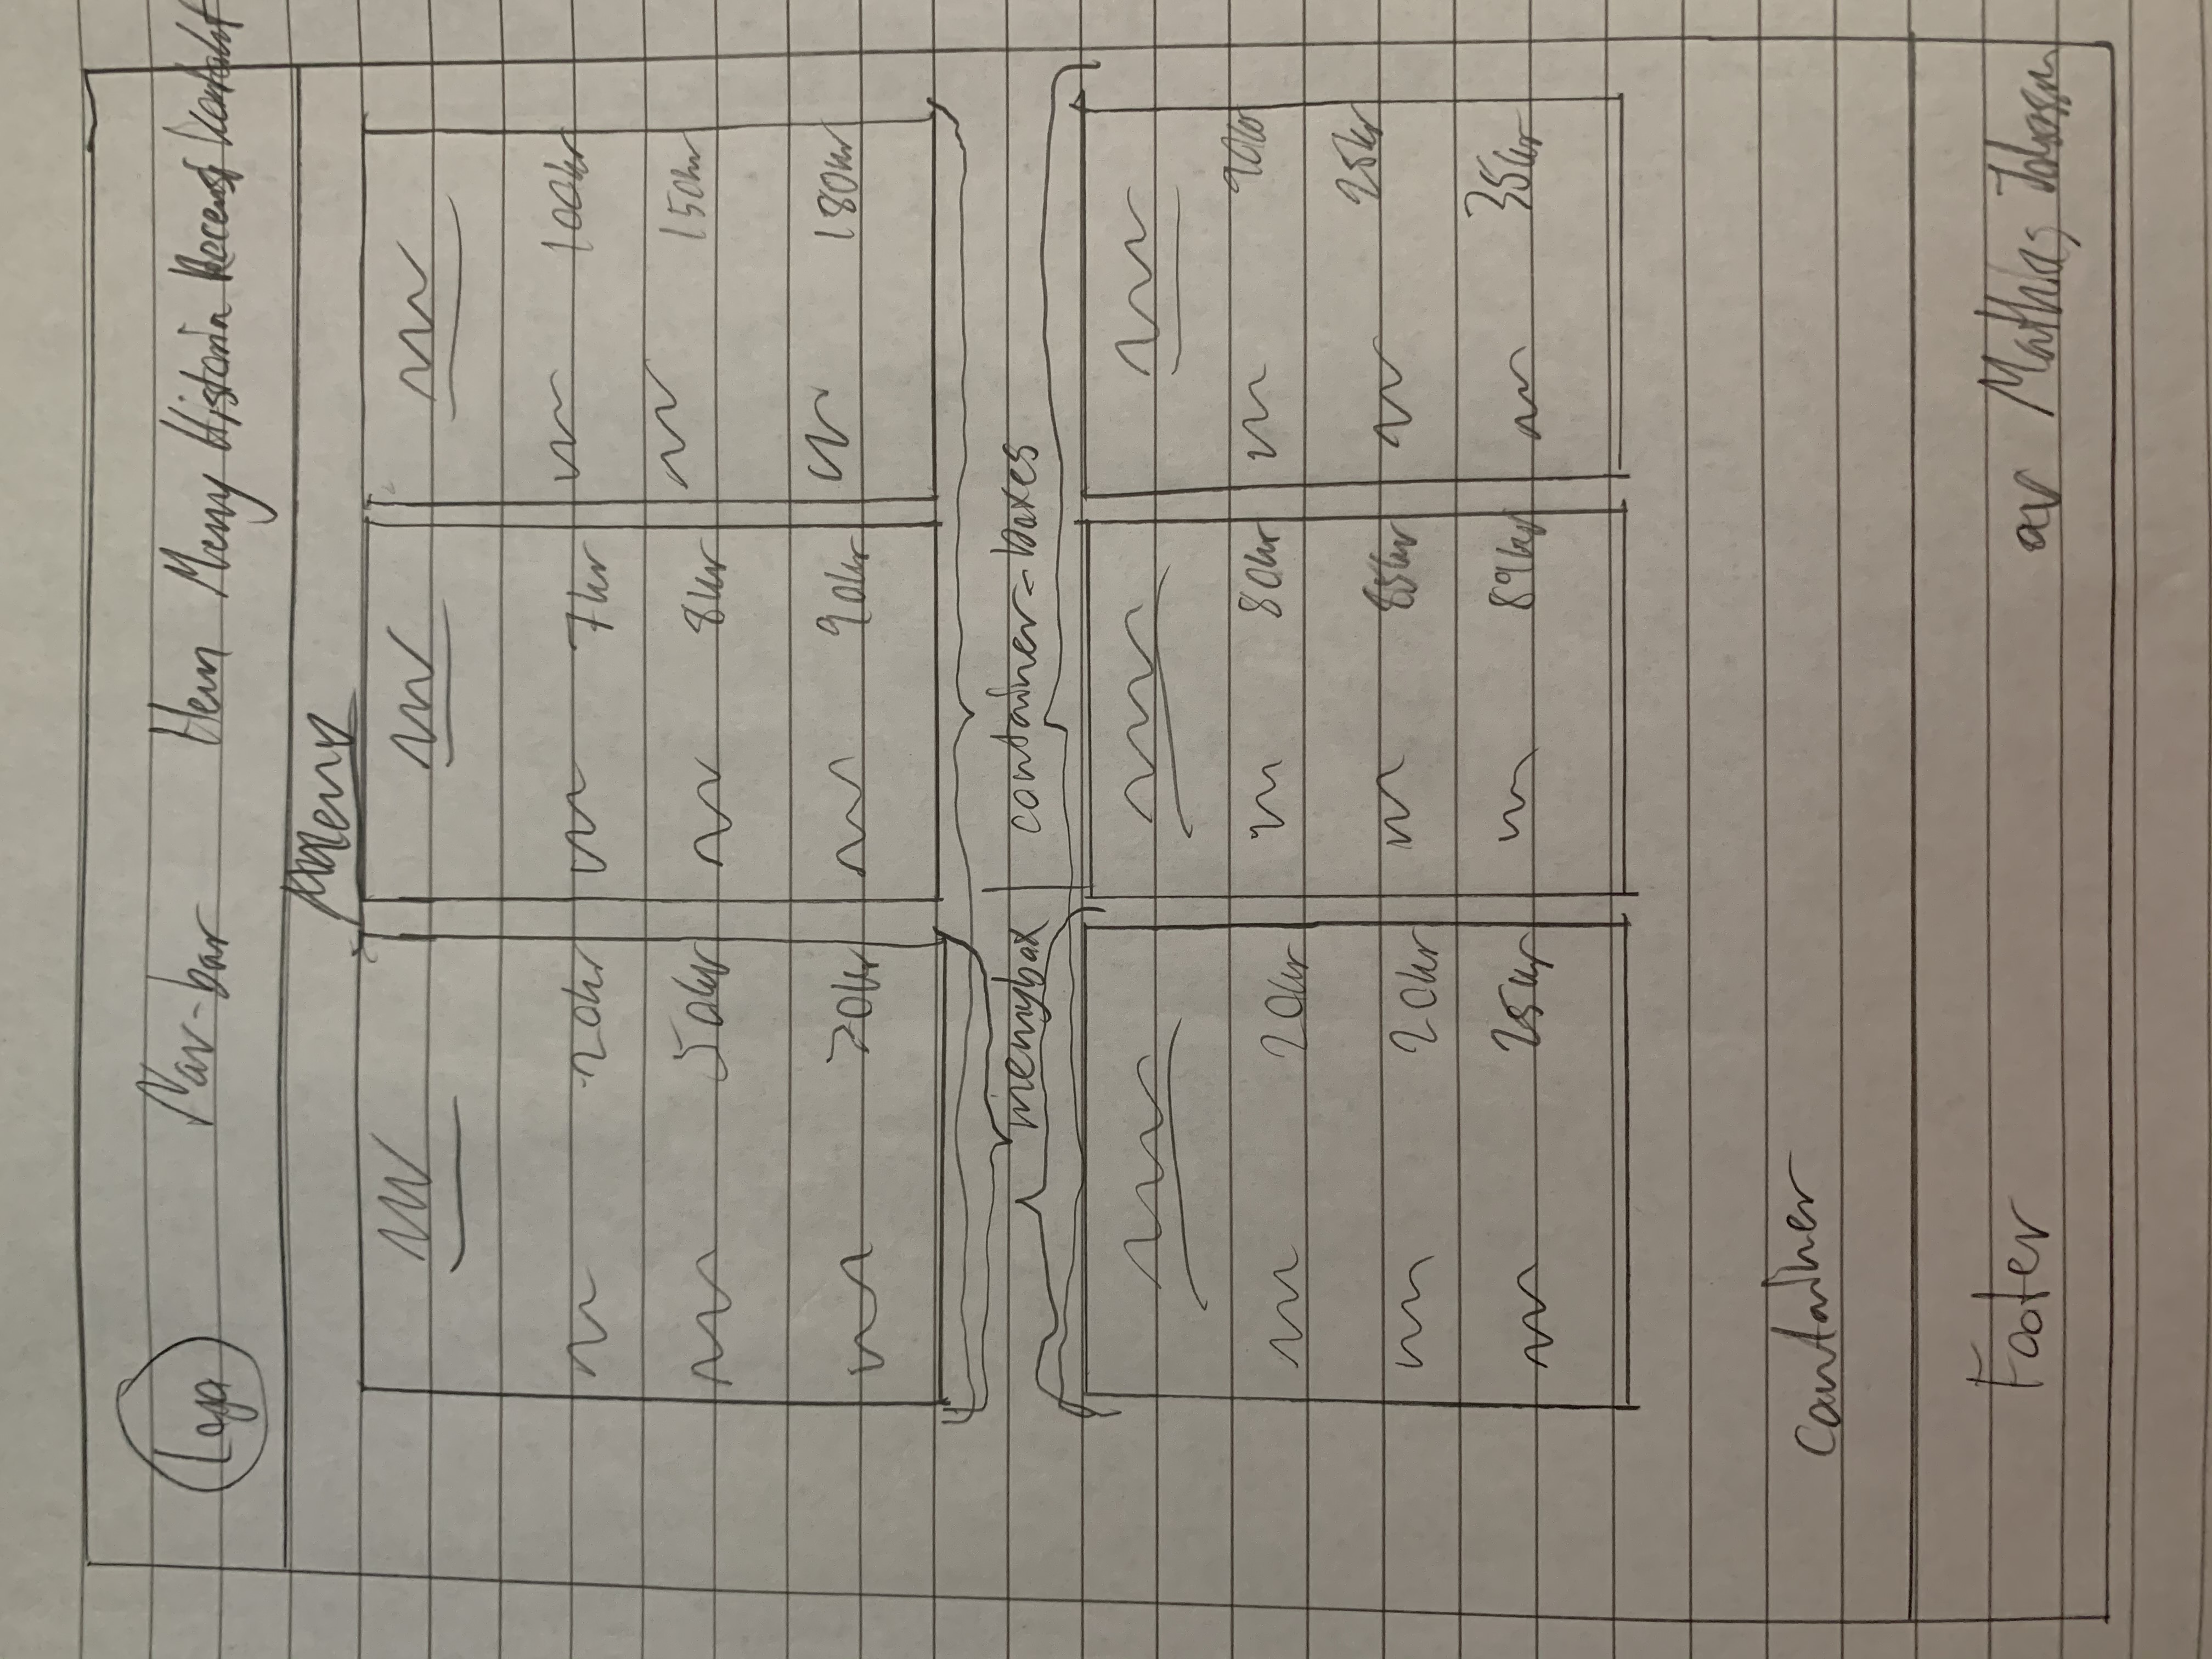 Loga Nav-bar Hem Meny Historia Recens Kontakt
Meny
20kr 7kr 100kr
50kr 8kr 150kr
70kr 90kr 180kr
menybox container-boxes
20kr 80kr 90kr
20kr 85kr 25kr
25kr 89kr 35kr
container
Footer av Mathias Johansson